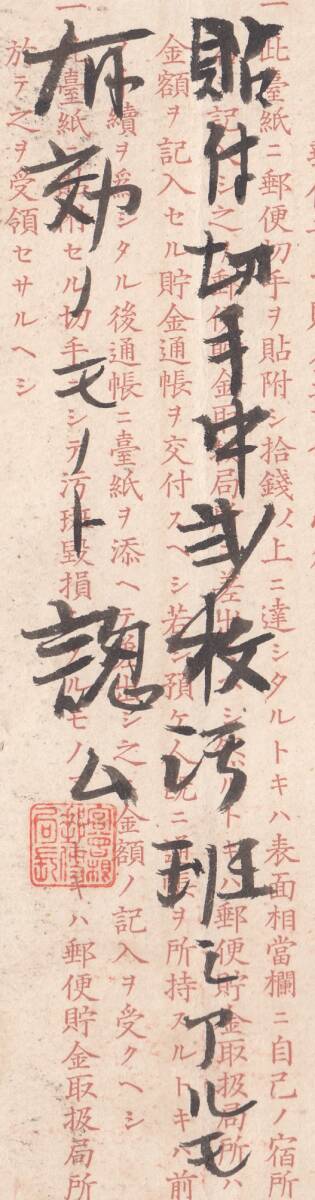 貼付切手中弐枚汚班シアルモ
有効ノモノト認ム
一此臺紙ニ郵便切手ヲ貼附シ拾錢以上ニ達シタルトキハ表面相當欄ニ自己ノ宿所
記 シ之 郵便貯金取扱局 差出 トキハ郵便貯金取扱局所ハ
金額ヲ記入セル貯金通帳ヲ交付スヘシ若シ預ケ人既ニ通帳ヲ所持スルトキハ前
續ヲ爲シタル後通帳ニ臺紙ヲ添ヘテ 出シ之 金額ノ記入ヲ受クヘシ
一此臺紙ニ 附セル切手ニシテ汚斑毀損 ルモノ トキハ郵便貯金取扱局所
於テ之ヲ受領セサルヘシ